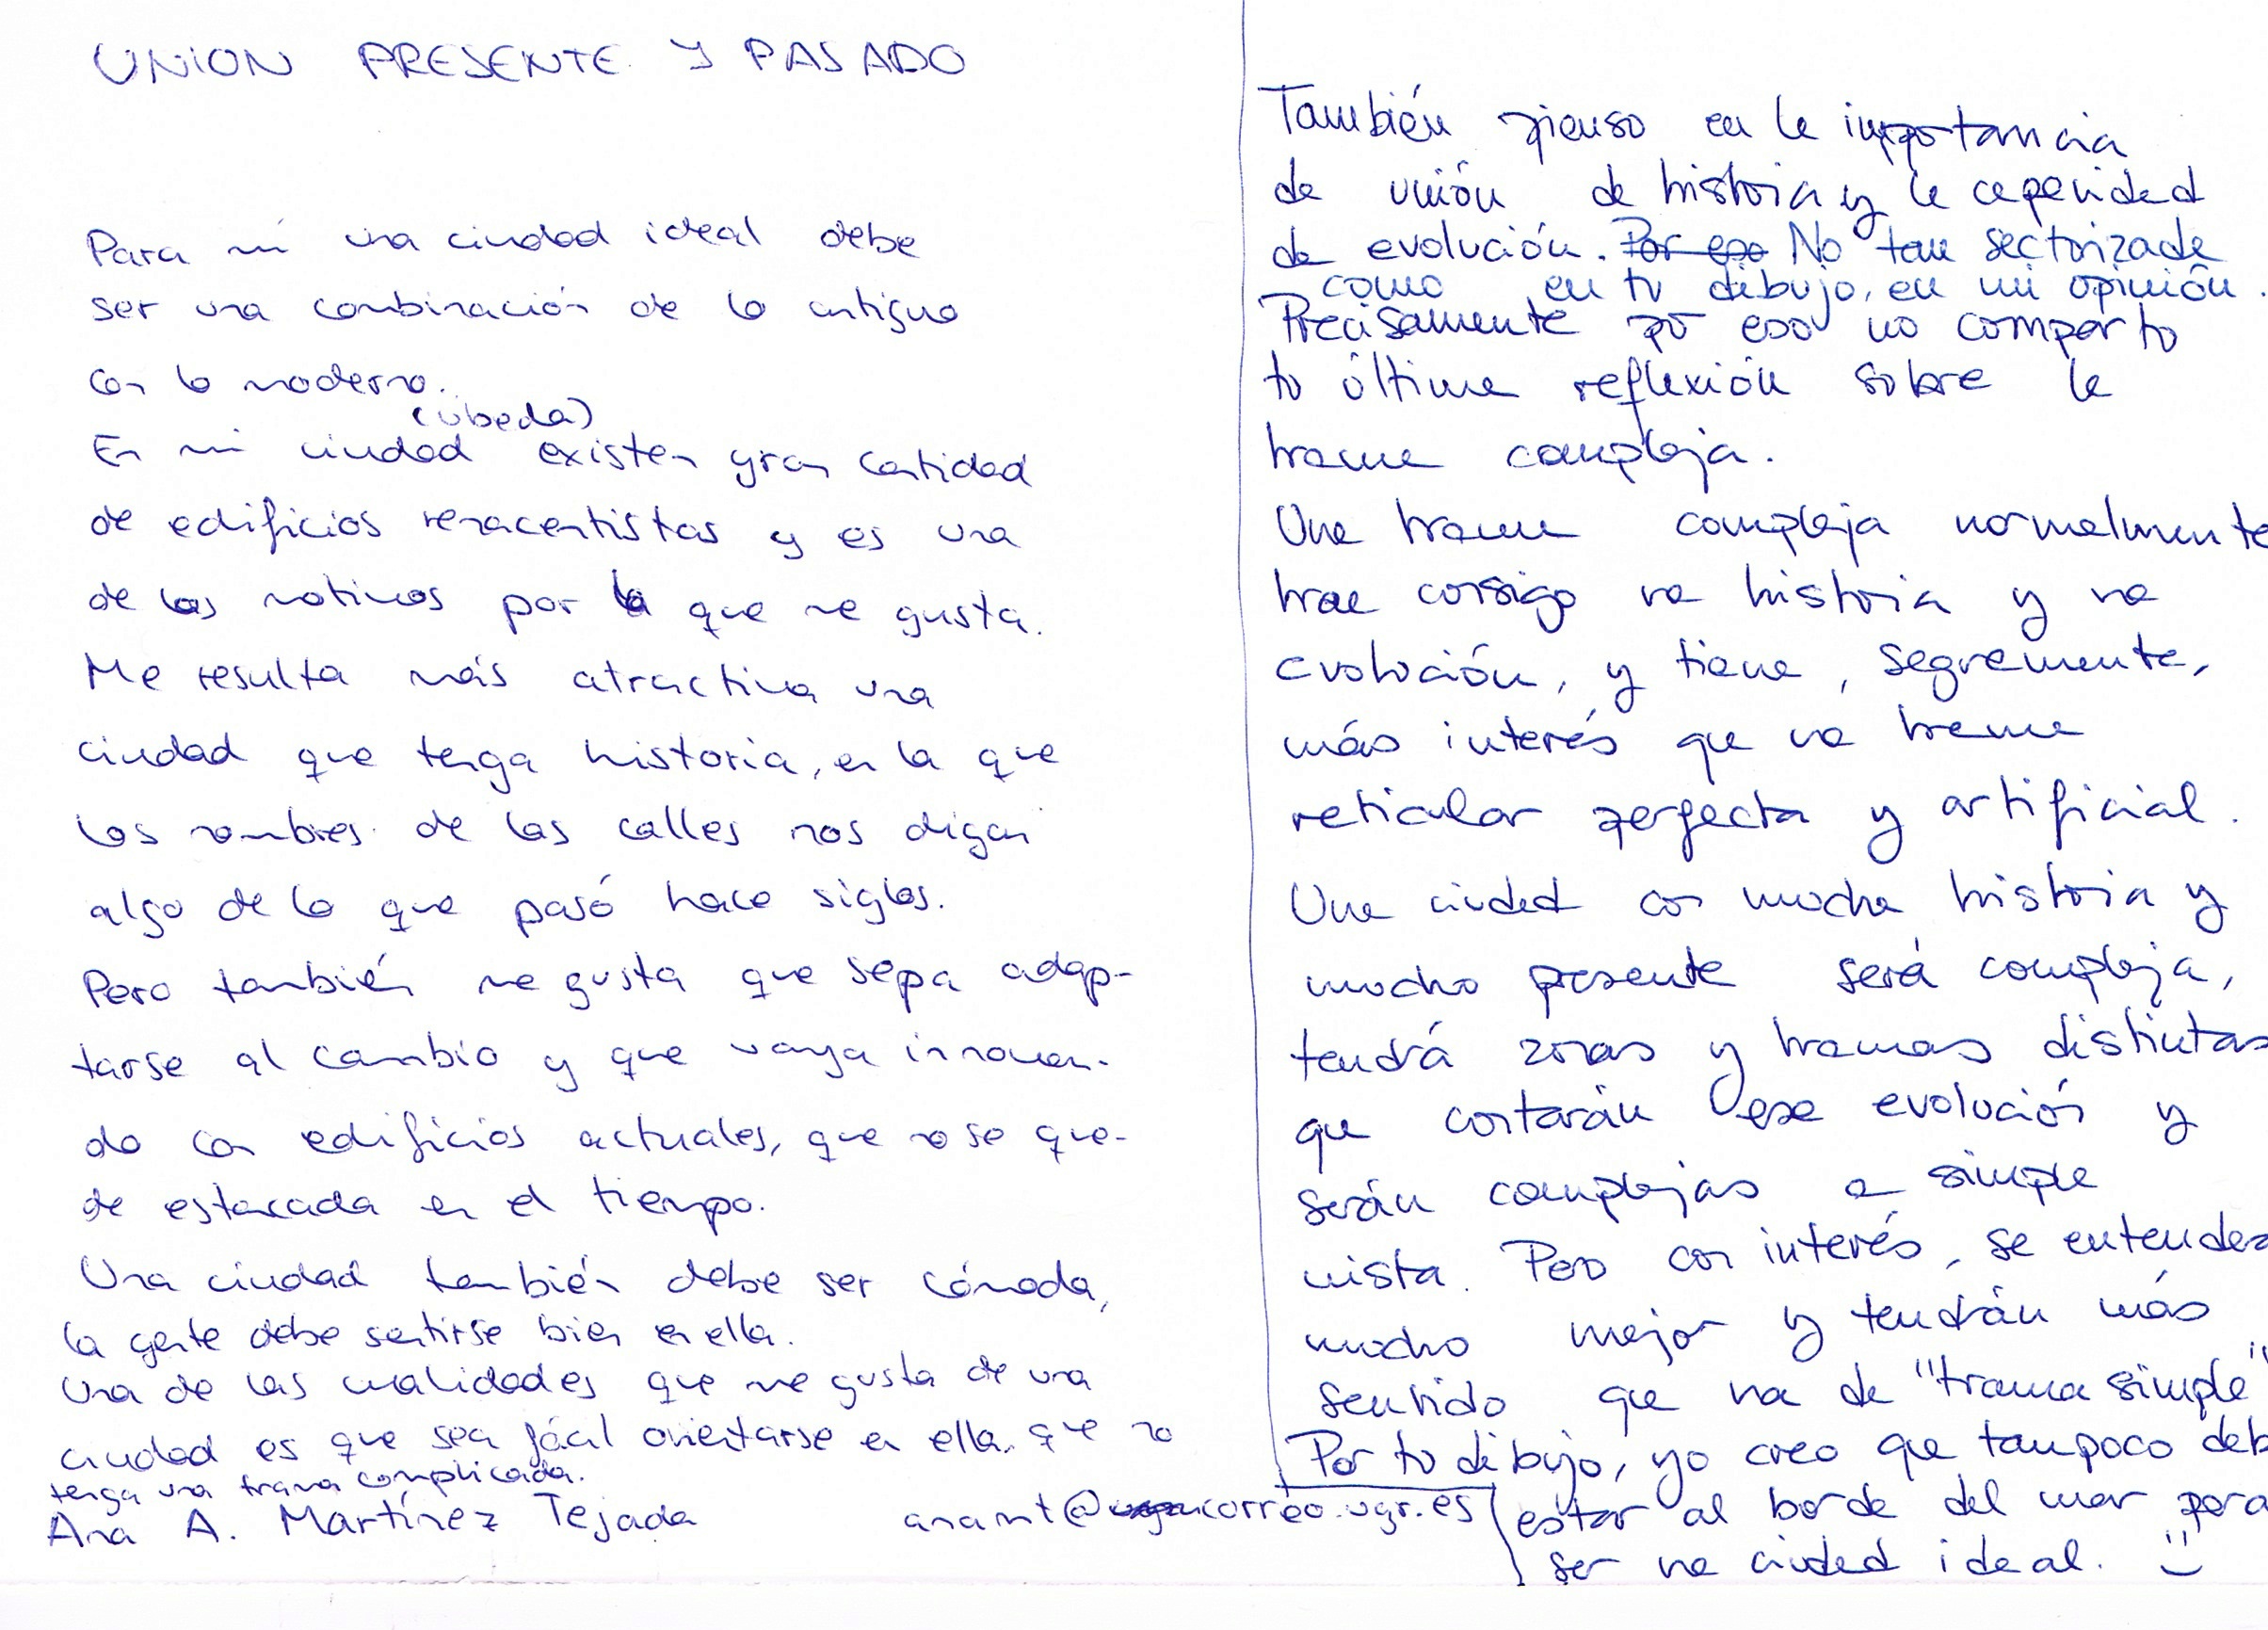 UNION PRESENTE Y PASADO
Para mi una ciudad ideal debe
ser una combinación de lo antiguo
con lo moderno.
(úbeda)
En mi ciudad existen gran cantidad
de edificios renacentistas y es una
de los motivos por la que me gusta.
Me resulta más atractiva una
ciudad que tenga historia, en la que
los nombres de las calles nos digan
algo de lo que pasó hace siglos.
Pero también me gusta que sepa adap-
tarse al cambio y que vaya innovan-
do con edificios actuales, que no se que-
de estancada en el tiempo.
Una ciudad también debe ser cómoda,
la gente debe sentirse bien en ella.
Una de las cualidades que me gusta de una
ciudad es que sea fácil orientarse en ella, que no
tenga una trama complicada.
Ana A. Martínez Tejada
anamt@correo.ugr.es
También pienso en la importancia
de unión de historia y la capacidad
de evolución. Por eso No tan sectorizada
como en tu dibujo, en mi opinión.
Precisamente por eso no comparto
tu última reflexión sobre la
trama compleja.
Una trama compleja normalmente
trae consigo una historia y una
evolución, y tiene, seguramente,
más interés que una trama
reticular perfecta y artificial.
Una ciudad con mucha historia y
mucho presente será compleja,
tendrá zonas y tramas distintas
que contarán esa evolución y
serán complejas a simple
vista. Pero con interés, se entenderá
mucho mejor y tendrán más
sentido que una de "trama simple"
Por tu dibujo, yo creo que tampoco deb
estar al borde del mar para
ser una ciudad ideal. :)